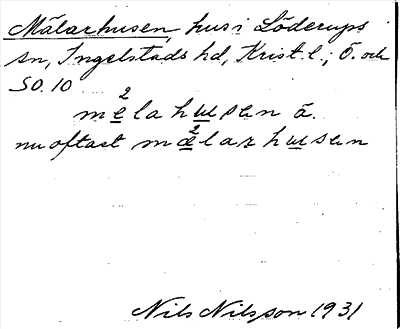 Mälarhusen, hus i Löderups
sn, Ingelstads hd, Krist. l.; Ö. och
SO. 10
2
melahusen ä.
nu oftast
2
mælarhusen
Nils Nilsson 1931